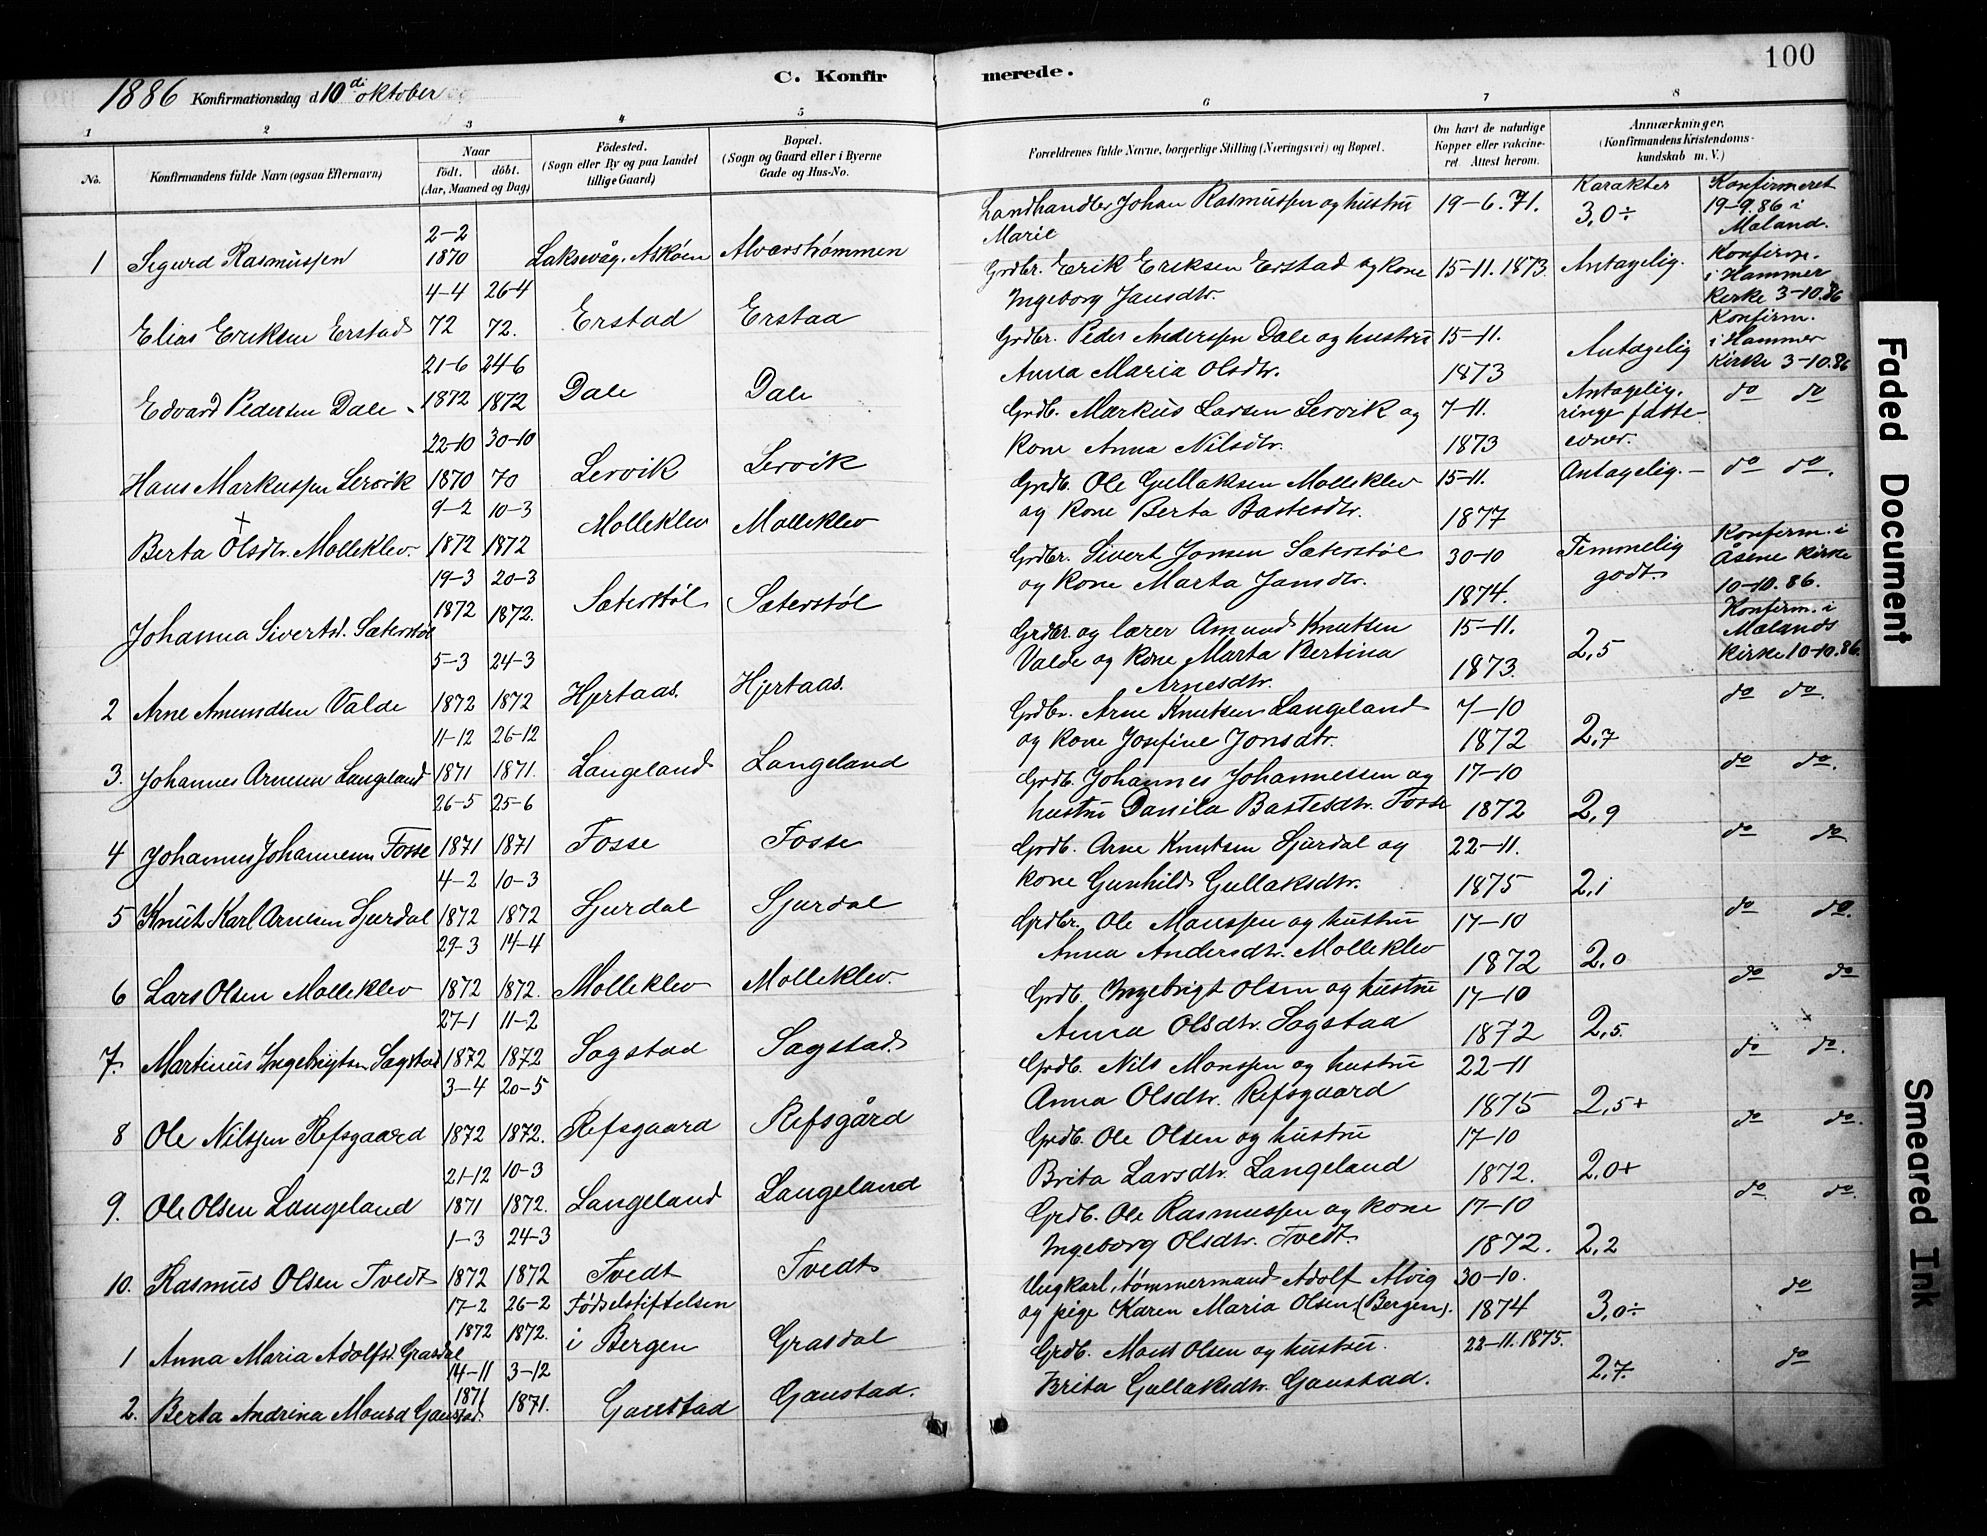 100
1886 Konfirmationsdag d. 10de oktober
C. Konfirmerede.
1 2 3 4 5 6 7 8
No.
Konfirmandens fulde Navn (ogsaa Efternavn)
Naar
födt. döbt.
(Aar, Maaned og Dag)
Födested.
(Sogn eller By og paa Landet
tillige Gaard)
Bopæl.
(Sogn og Gaard eller i Byerne
Gade og Hus-No.
Forældrenes fulde Navne, borgerlige Stilling (Næringsvei) og Bopæl.
Om havt de naturlige
Kopper eller vakcine-
ret Attest herom.
Anmærkninger,
(Konfirmandens Kristendoms-
kundskab m. V.)
Karakter
1 Sigurd Rasmussen 2-2 1870 Laksevåg. Askøen Alverstrømmen
Landhandler Johan Rasmussen og hustru
Marie
19-6. 71. 3,0÷
Konfirmeret
19-9.86 i
Mæland.
Elias Eriksen Erstad 4-4 72 26-4 72. Erstad Erstad
Grdbr. Erik Eriksen Erstad og kone
Ingeborg Jansdtr.
15-11. 1873. Antagelig.
Konfirm.
i Hammer
kirke 3-10.86
Edvard Pedersen Dale 21-6 1872 24-6 1872 Dale Dale
Grdbr. Peder Andersen Dale og hustru
Anna Maria Olsdtr.
15-11. 1873 Antagelig
Konfirm.
i Hammer
Kirke 3-10.86
Hans Markussen Lervik 22-10 1870 30-10 70 Lervik Lervik
Grdb. Markus Larsen Lervik og
kone Anna Nilsdtr.
7-11. 1873
Antagelig.
ringe fatte-
evner.
do do
Berta Olsdtr. Molleklev. 9-2 1872 10-3 1872 Molleklev Molleklev
Grdb. Ole Gullaksen Molleklev
og kone Berta Bastesdtr.
15-11. 1877 Antagelig. - do do.
Johanna Sivertsd. Sæterstøl 19-3 1872 20-3 1872. Sæterstøl Sæterstøl
Grdbr. Sivert Jonsen Sæterstøl
og kone Marta Jansdtr.
30-10 1874.
Temmelig
godt.
Konfirm. i
Åsene kirke
10-10. 86.
2 Arne Amundsen Valde 5-3 1872 24-3 1872 Hjertaas. Hjertaas.
Grdbr. og lærer Amund Knutsen
Valde og kone Marta Bertina
Arnesdtr.
15-11. 1873. 2,5
Konfirm. i
Mælands
kirke 10-10.86.
3. Johannes Arnesen Langeland 11-12 1871 26-12 1871. Langeland Langeland
Grdbr. Arne Knutsen Langeland
og kone Josefine Jonsdtr.
7-10 1872 2,7 do do.
4 Johannes Johannesen Fosse 26-5 1871 25-6 1871 Fosse Fosse
Grdb. Johannes Johannessen og
hustru Danila Bastesdtr. Fosse
17-10 1872 2,9 do do.
5 Knut Karl Arnesen Sjurdal 4-2 1872 10-3 1872 Sjurdal Sjurdal
Grdb. Arne Knutsen Sjurdal og
kone Gunhild Gullaksdtr.
22-11. 1875 2,1 do do
6 Lars Olsen Molleklev 29-3 1872 14-4 1872. Molleklev Molleklev.
Grdbr. Ole Monssen og hustru
Anna Andersdtr. Molleklev
17-10 1872 2,0 do do.
7. Martinus Ingebrigtsen Sagstad 27-1 1872 11-2 1872 Sagstad Sagstad.
Grdb. Ingebrigt Olsen og hustru
Anna Olsdtr. Sagstad
17-10 1872 2,5. do do
8 Ole Nilssen Refsgaard 3-4 1872 20-5 1872. Refsgaard Refsgård
Grdb. Nils Monssen og hustru
Anna Olsdtr. Refsgaard
22-11 1875 2,5+ do do.
9. Ole Olsen Langeland 21-12 1871 10-3 1872. Langeland Langeland
Grdb. Ole Olsen og hustru
Brita Larsdtr. Langeland
17-10 1872. 2,0+ do do.
10. Rasmus Olsen Tvedt 1-3 1872 24-3 1872 Tvedt Tvedt
Grdb. Ole Rasmussen og kone
Ingeborg Olsdtr. Tvedt.
17-10 1872. 2,2 do do.
1 Anna Maria Adolfsd. Grasdal 17-2 1872 26-2 1872. Fødselstiftelsen
i Bergen Grasdal
Ungkarl, tømmermand Adolf Alvig
og pige Karen Maria Olsen (Bergen).
30-10. 1874 3,0÷ do
2. Berta Andrina Monsd Gaustad 14-11 1871 3-12 1871. Gaustad Gaustad.
Grdb. Mons Olsen og hustru.
Brita Gullaksdtr. Gaustad.
22-11. 1875. 2,7. do
Faded Document
Smeared Ink